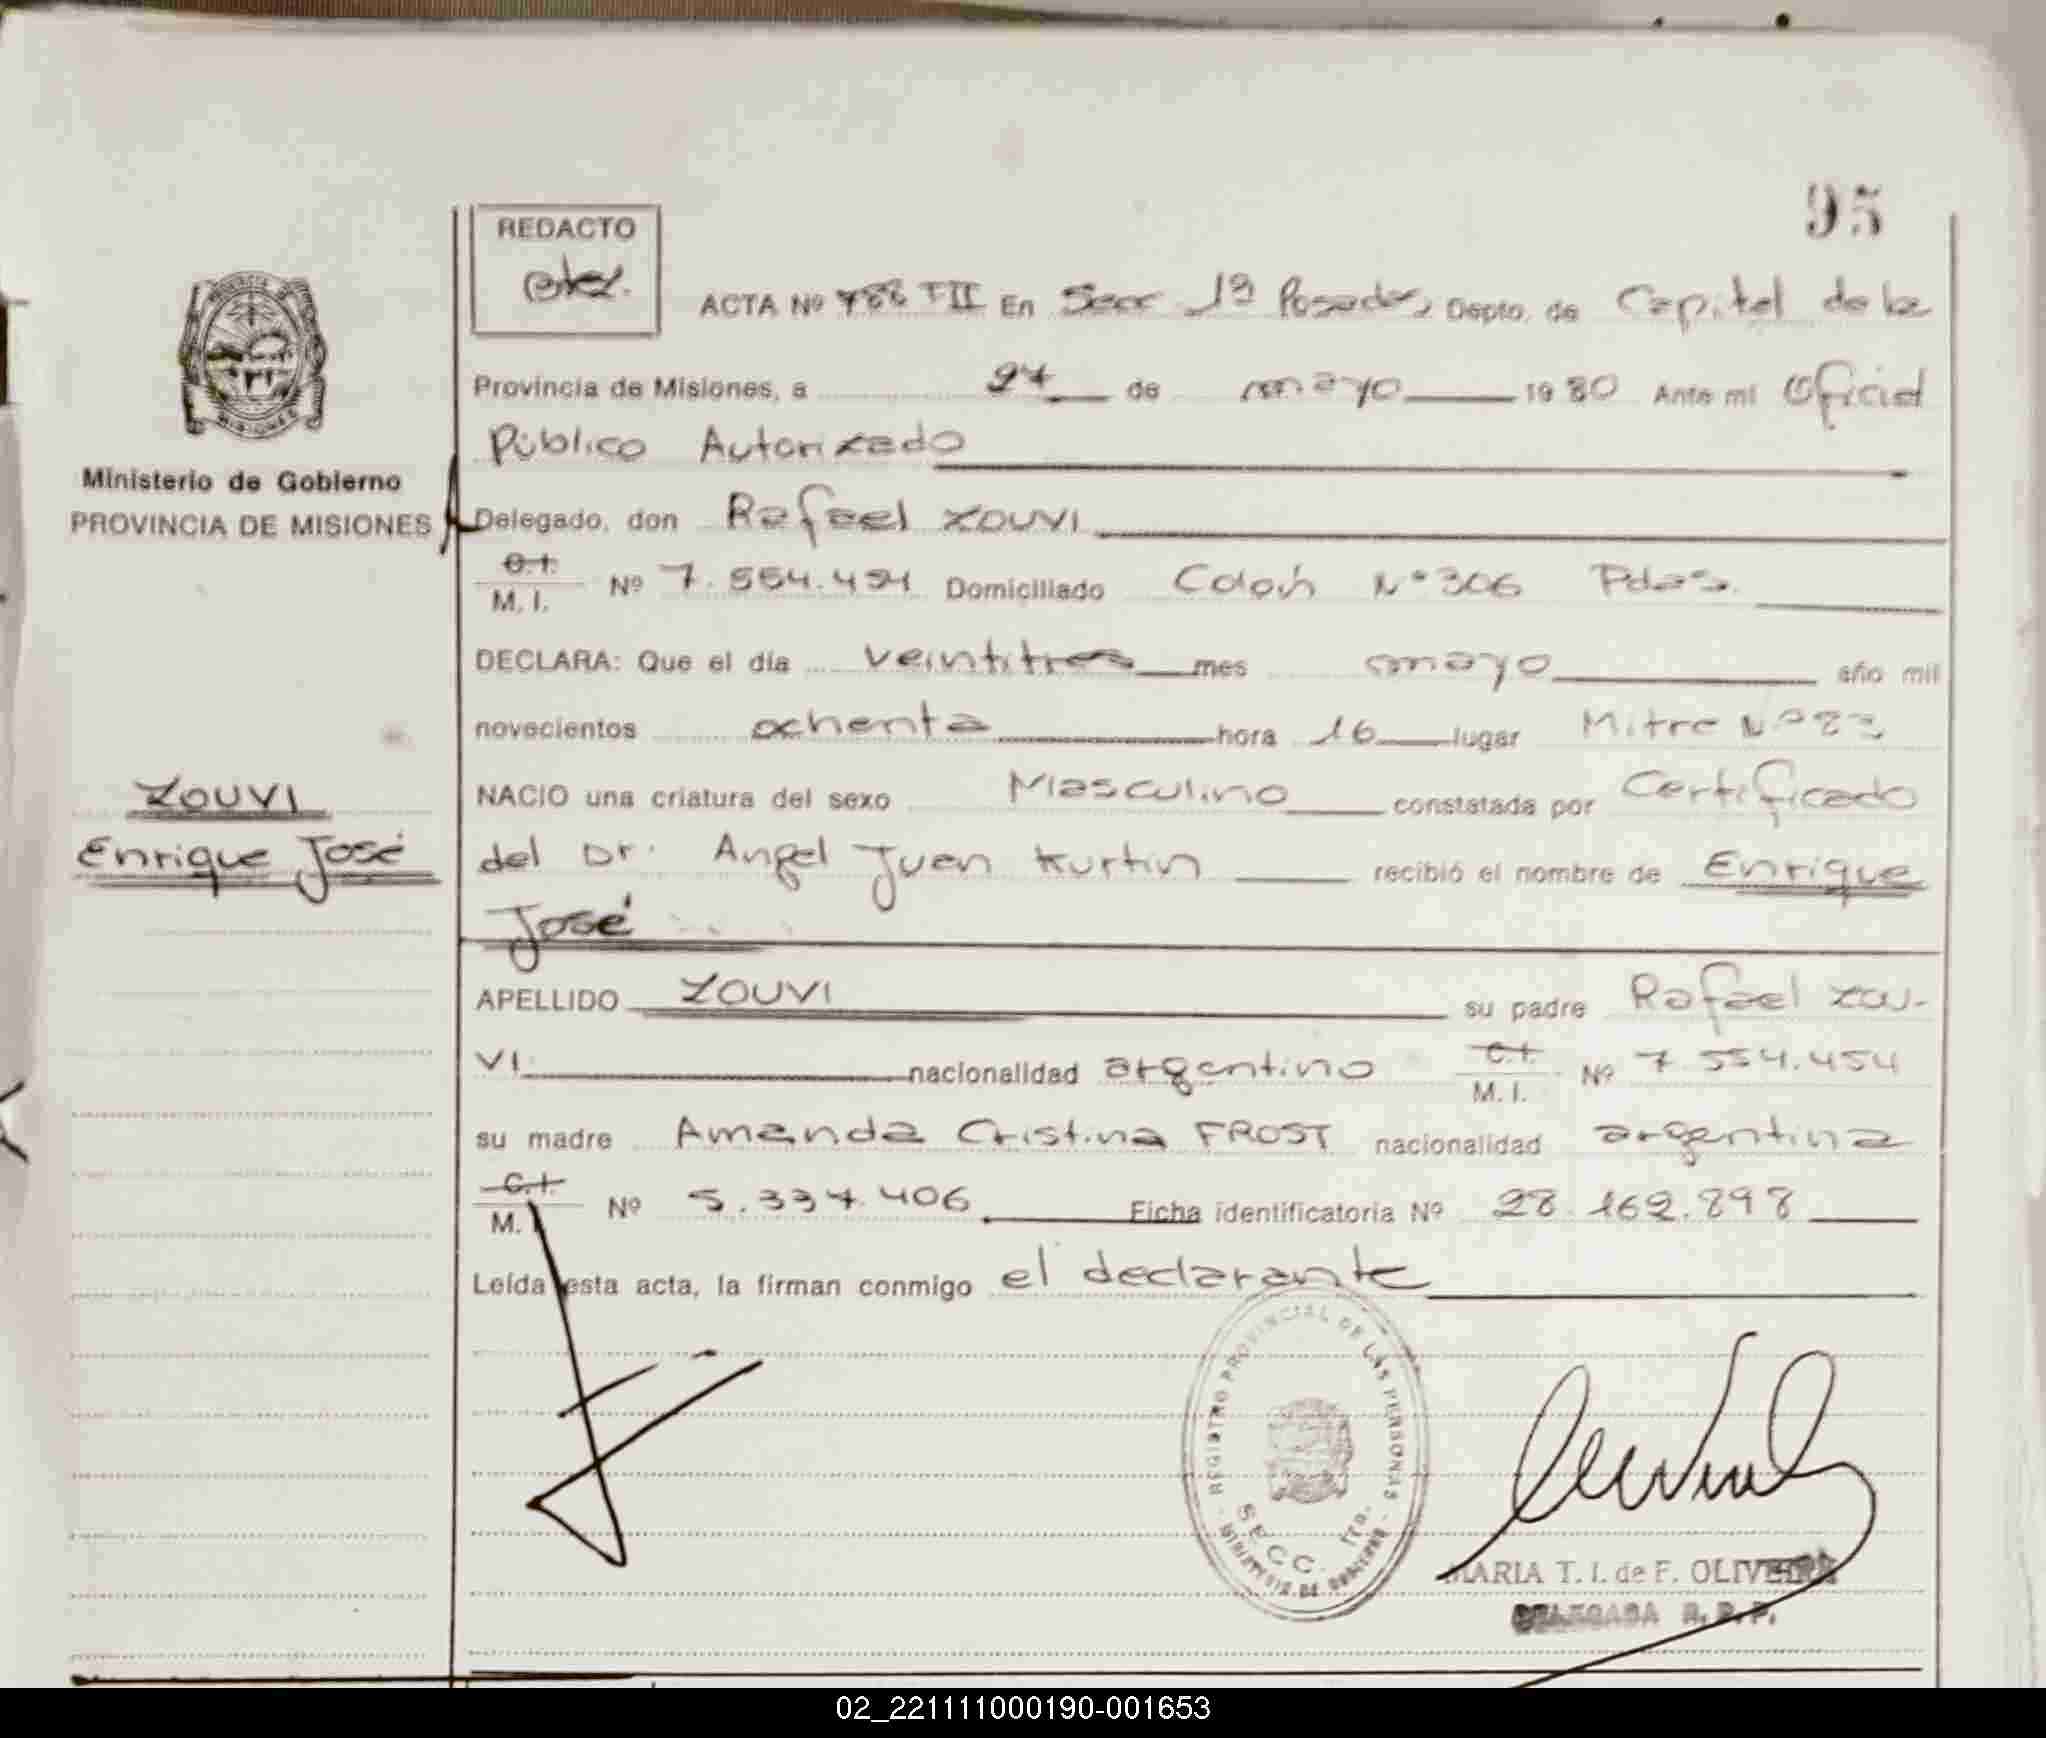 95
REDACTO
ACTA Nº 788 TII En Secc 1ª Posadas, Depto. de Capital de la
Provincia de Misiones, a 27 de mayo 1980 Ante mi Oficial
Público Autorizado
Ministerio de Gobierno
PROVINCIA DE MISIONES
Delegado, don Rafael ZOUVI
C.I.
M. I. Nº 7.554.454 Domiciliado Colón Nº 306 Pdas.
DECLARA: Que el día veintitres mes mayo año mil
novecientos ochenta hora 16 lugar Mitre Nº
ZOUVI
Enrique José
NACIO una criatura del sexo Masculino constatada por Certificado
del Dr. Angel Juan Kurtin recibió el nombre de Enrique
José
APELLIDO ZOUVI su padre Rafael ZOU-
VI nacionalidad argentino C.I.
M. I. Nº 7.554.454
su madre Amanda Cristina FROST nacionalidad argentina
C.I.
M. I. Nº 5.337.406 Ficha identificatoria Nº 28.162.898
Leída esta acta, la firman conmigo el declarante
REGISTRO PROVINCIAL DE LAS PERSONAS
SECC. 1ra.
MINISTERIO DE GOBIERNO
MARIA T. I. de F. OLIVEIRA
DELEGADA R. P. P.
02_221111000190-001653